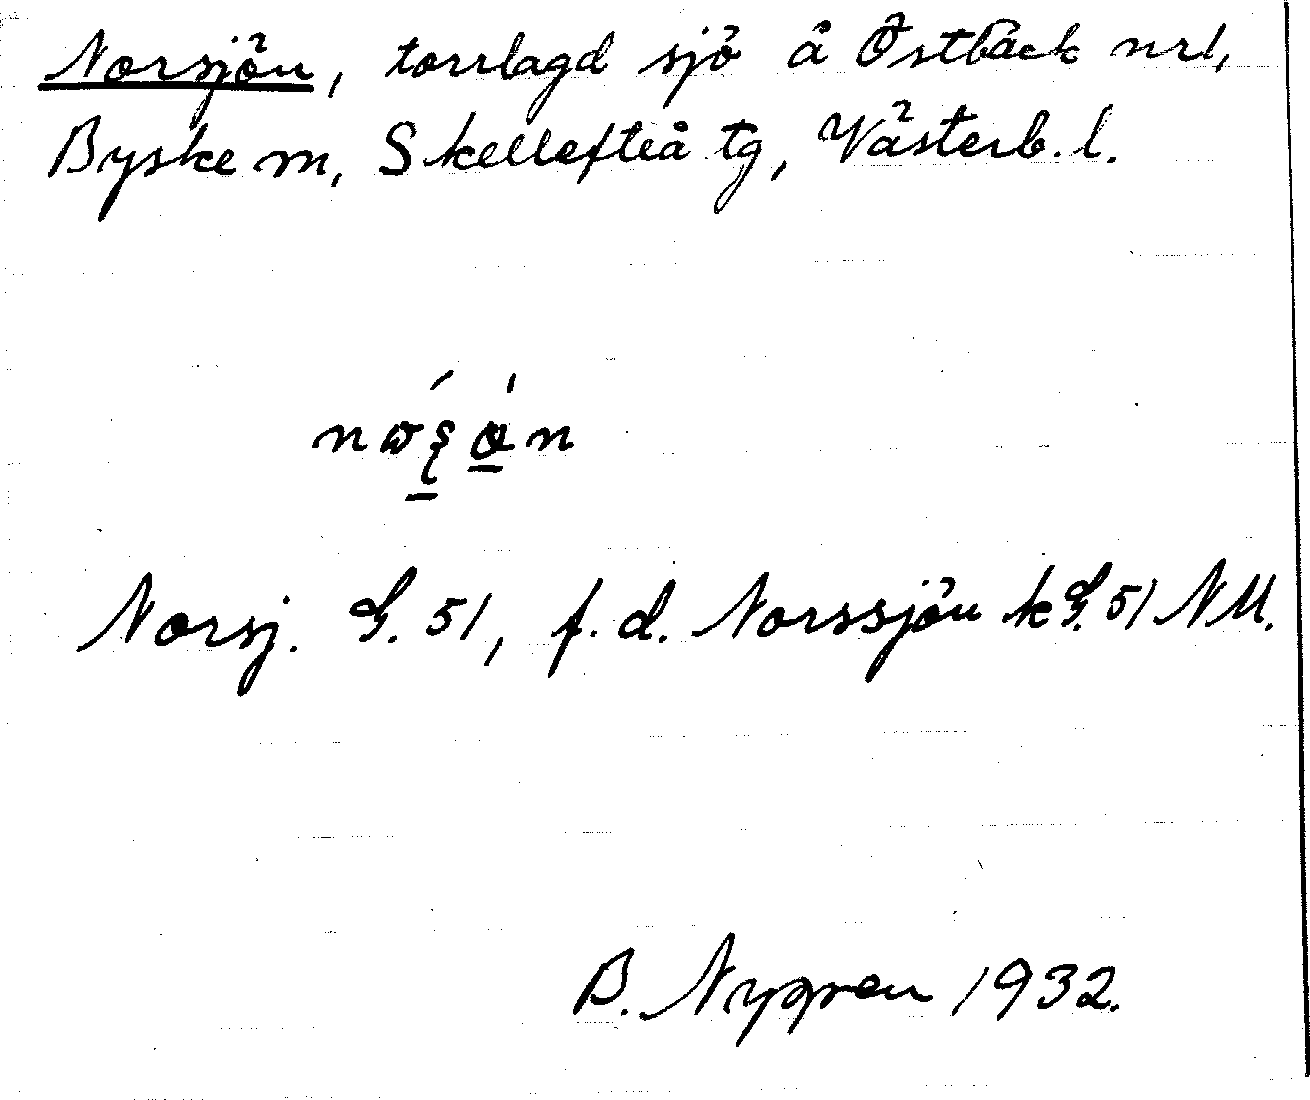 Norsjön, torrlagd sjö å Östbäck nr 1,
Byske sn, Skellefteå tg, Västerb. l.
Norsj. G. 51, f. d. Norssjön k G. 51 NM.
B. Nygren 1932.